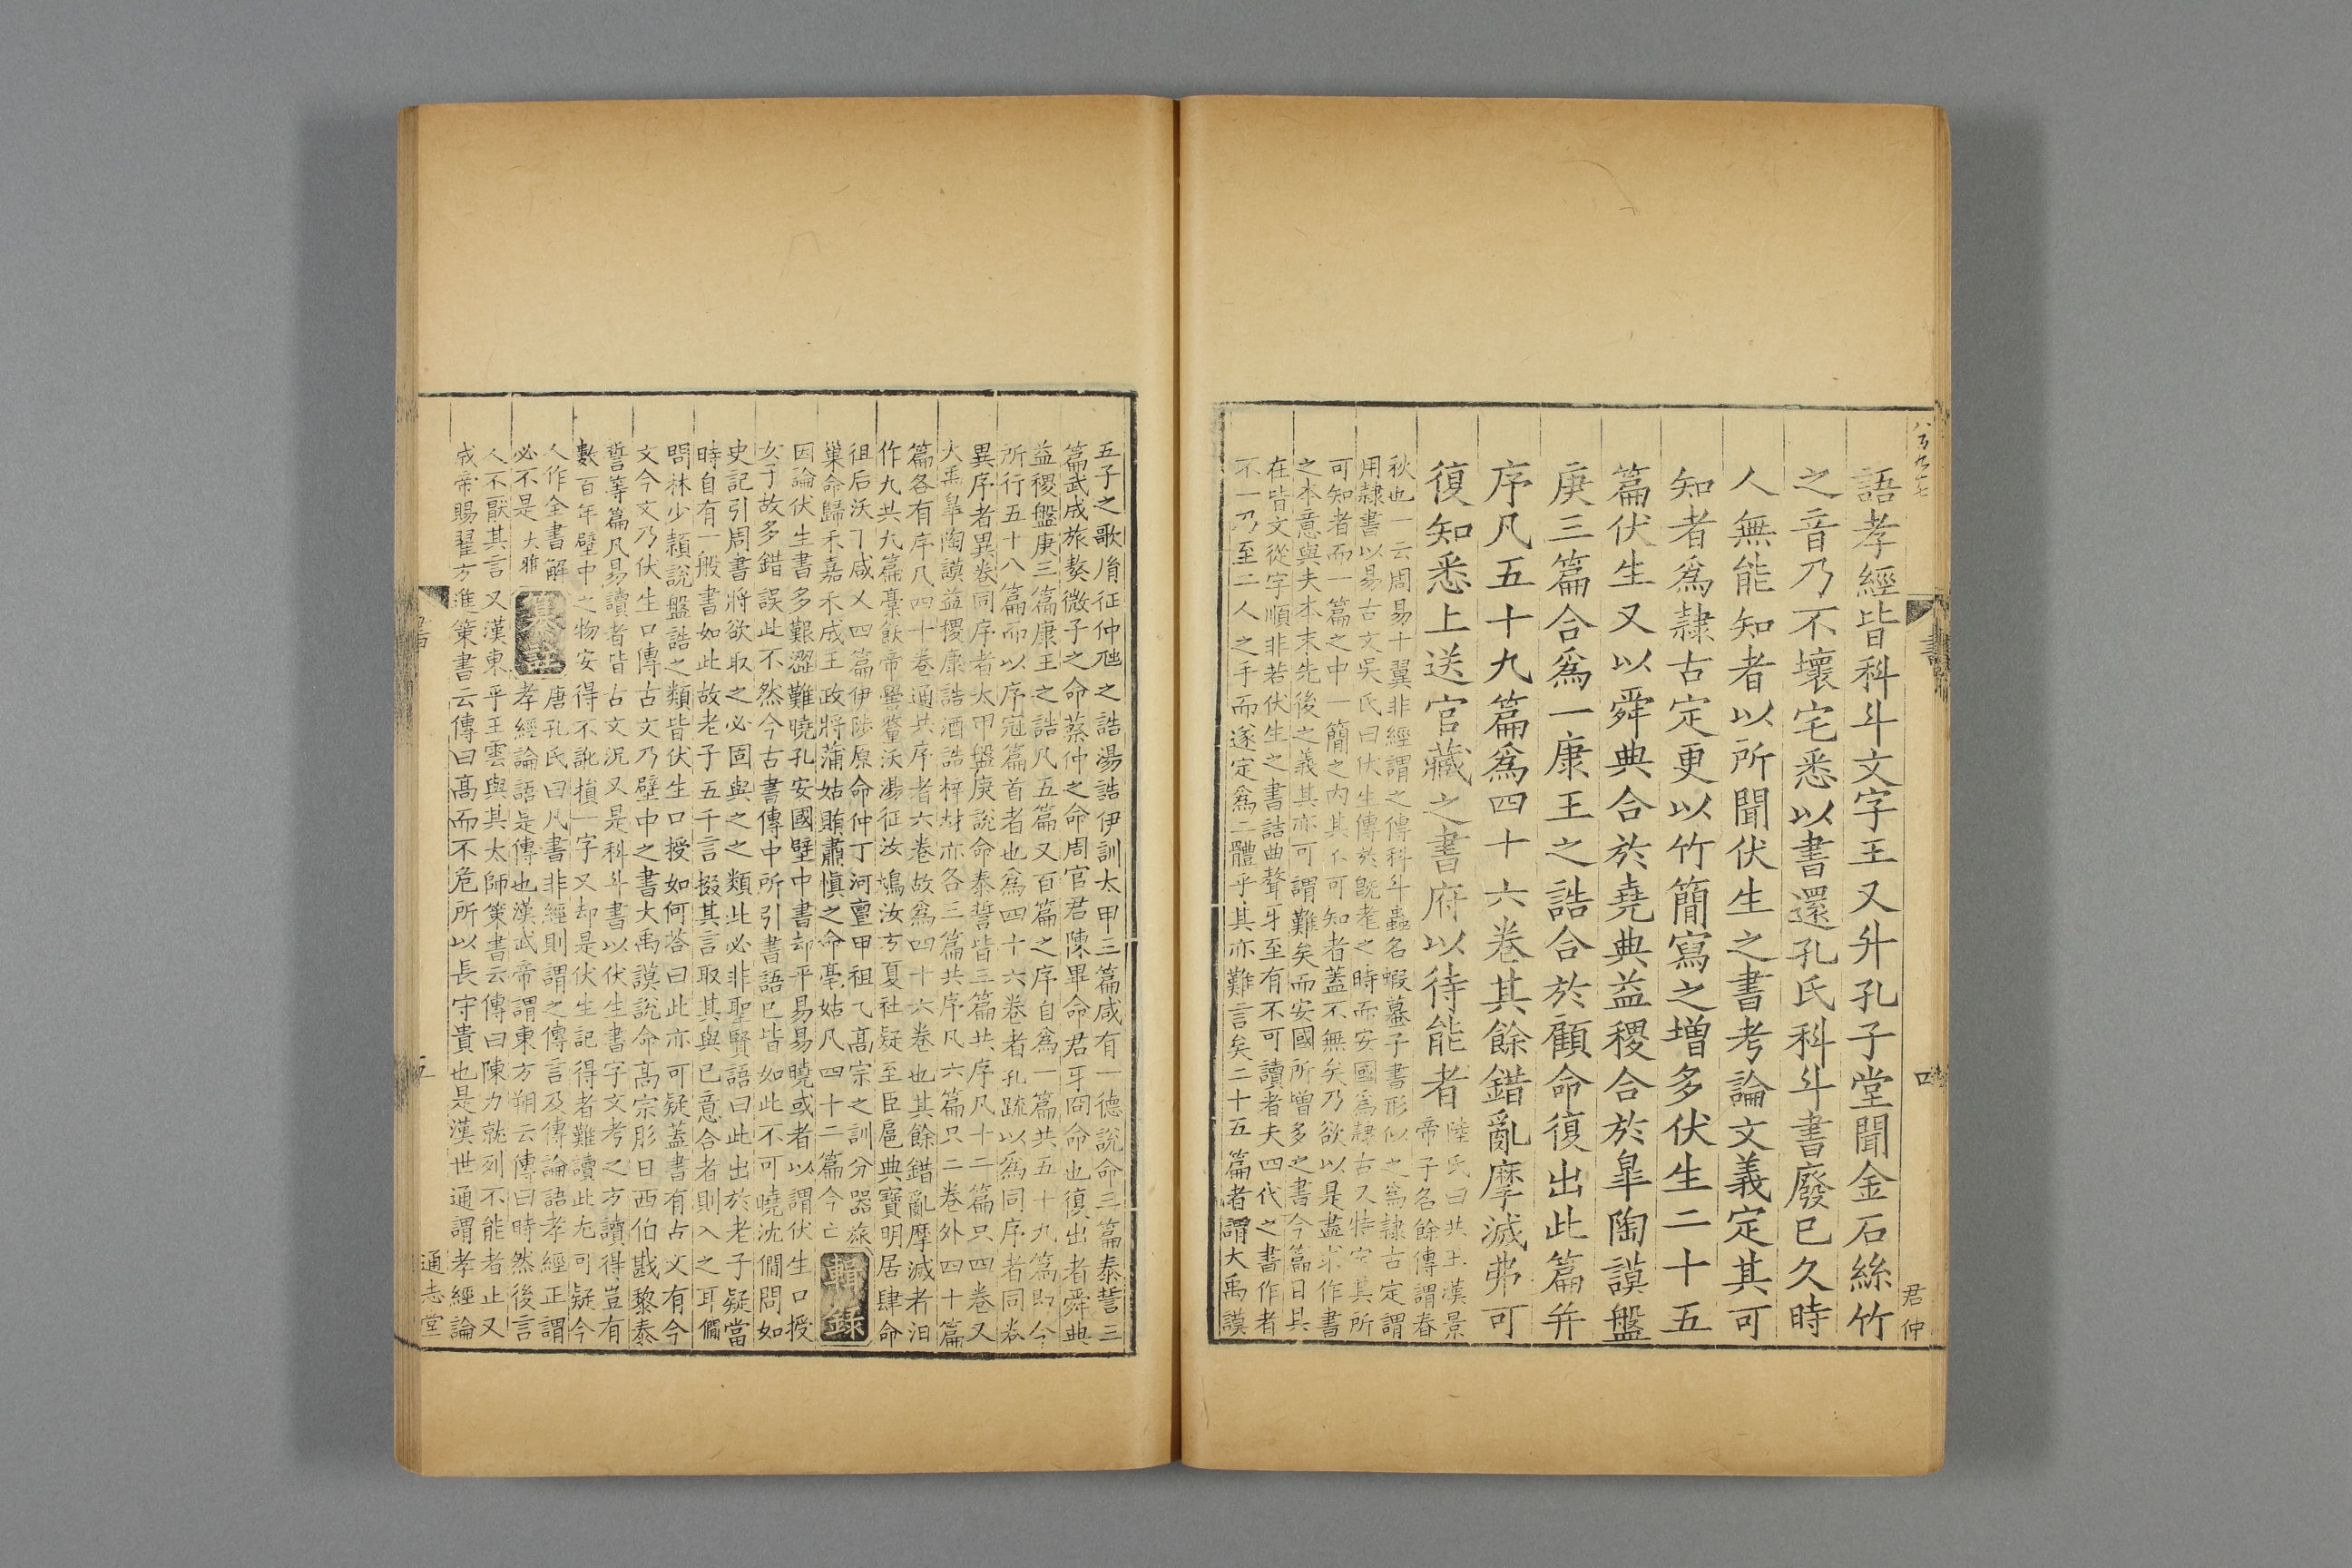 語孝經皆科斗文字王又升孔子堂聞金石絲竹
之音乃不壞宅悉以書還孔氏科斗書廢已久時
人無能知者以所聞伏生之書考論文義定其可
知者爲隷古定更以竹簡寫之增多伏生二十五
篇伏生又以舜典合於堯典益稷合於臯陶謨盤
庚三篇合爲一康王之誥合於顧命復出此篇并
序凡五十九篇爲四十六卷其餘錯亂摩滅弗可
復知悉上送官藏之書府以待能者
陸氏曰共王漢景
帝子名餘傳謂春
秋也一云周易十翼非經謂之傳科斗蟲名蝦蟇子書形似之爲隷古定謂
用隷書以易古文吳氏曰伏生傳於旣老之時而安國爲隷古又特定其所
可知者而一篇之中一簡之内其不可知者蓋不無矣乃欲以是盡求作書
之本意與夫本末先後之義其亦可謂難矣而安國所增多之書今篇目具
在皆文從字順非若伏生之書詰曲聱牙至有不可讀者夫四代之書作者
不一乃至二人之手而遂定爲二體乎其亦難言矣二十五篇者謂大禹謨
書
四
君仲
五子之歌胤征仲虺之誥湯誥伊訓太甲三篇咸有一德說命三篇泰誓三
篇武成旅獒微子之命蔡仲之命周官君陳畢命君牙冏命也復出者舜典
益稷盤庚三篇康王之誥凡五篇又百篇之序自爲一篇共五十九篇即今
所行五十八篇而以序冠篇首者也爲四十六卷者孔疏以爲同序者同卷
異序者異卷同序者太甲盤庚說命泰誓皆三篇共序凡十二篇只四卷又
大禹臯陶謨益稷康誥酒誥梓材亦各三篇共序凡六篇只二卷外四十篇
篇各有序凡四十卷通共序者六卷故爲四十六卷也其餘錯亂摩滅者汩
作九共九篇槀飫帝嚳釐沃湯征汝鳩汝方夏社疑至臣扈典寶明居肆命
徂后沃丁咸乂四篇伊陟原命仲丁河亶甲祖乙高宗之訓分器旅
巢命歸禾嘉禾成王政將蒲姑賄肅愼之命亳姑凡四十二篇今亡
輯錄
因論伏生書多艱澀難曉孔安國壁中書却平易易曉或者以謂伏生口授
女子故多錯誤此不然今古書傳中所引書語已皆如此不可曉沈僩問如
史記引周書將欲取之必固與之之類此必非聖賢語曰此出於老子疑當
時自有一般書如此故老子五千言掇其言取其與已意合者則入之耳僩
問林少穎說盤誥之類皆伏生口授如何荅曰此亦可疑蓋書有古文有今
文今文乃伏生口傳古文乃壁中之書大禹謨說命高宗肜日西伯戡黎泰
誓等篇凡易讀者皆古文況又是科斗書以伏生書字文考之方讀得豈有
數百年壁中之物安得不訛損一字又却是伏生記得者難讀此尤可疑今
人作全書解
必不是大雅
纂註
唐孔氏曰凡書非經則謂之傳言及傳論語孝經正謂
孝經論語是傳也漢武帝謂東方朔云傳曰時然後言
人不厭其言又漢東平王雲與其太師策書云傳曰陳力就列不能者止又
成帝賜翟方進策書云傳曰高而不危所以長守貴也是漢世通謂孝經論
通志堂